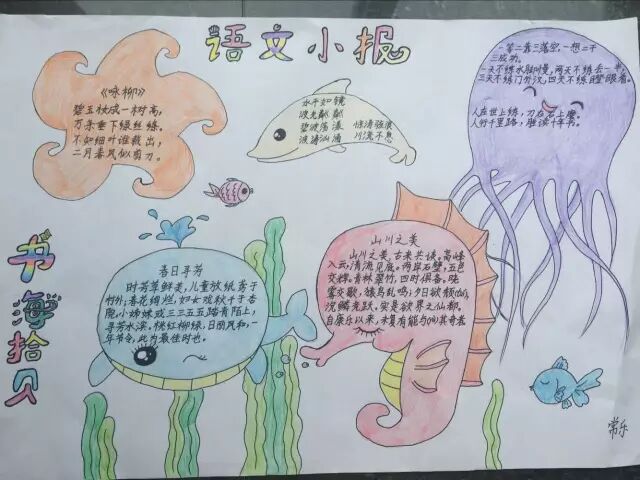 语文小报
书海拾贝
《咏柳》
碧玉妆成一树高,
万条垂下绿丝绦。
不知细叶谁裁出,
二月春风似剪刀。
水平如镜
波光粼粼
碧波荡漾 惊涛骇浪
波涛汹涌 川流不息
一等二靠三落空,一想二干
三成功。
一天不练手脚慢,两天不练丢一半,
三天不练门外汉,四天不练瞪眼看。
人在世上练,刀在石上磨。
人行千里路,胜读十年书。
春日寻芳
时芳菲鲜美,儿童放纸鸢于
村外;春花绚烂,如女戏秋千于杏
院。小姊妹或三三五五踏青陌上,
寻芳水滨。桃红柳绿,日丽风和,一
年节令,此为最佳时也。
山川之美
山川之美,古来共谈。高峰
入云,清流见底。两岸石壁,五色
交辉。青林翠竹,四时俱备。晓
雾交歇,猿鸟乱鸣;夕日欲颓(tuí),
沉鳞竞跃,实是欲界之仙都。
自康乐以来,未复有能与(yù)其奇者
常乐